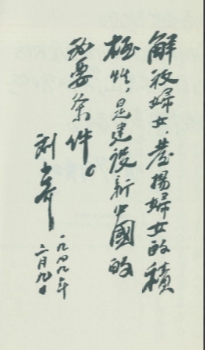 解放妇女，发揚妇女的積
極性，是建设新中國的
必要条件。
刘少奇
一九四九年
二月九日